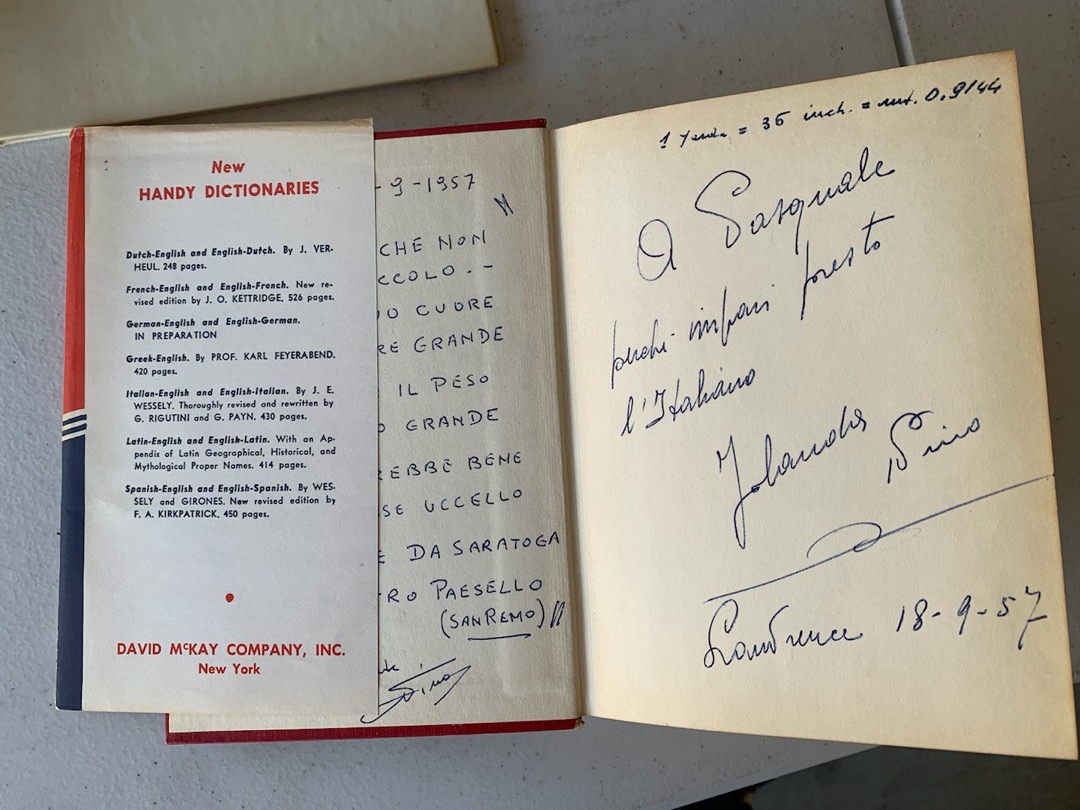 New
HANDY DICTIONARIES
Dutch-English and English-Dutch. By J. VER-
HEUL. 248 pages.
French-English and English-French. New re-
vised edition by J. O. KETTRIDGE. 526 pages.
German-English and English-German.
IN PREPARATION
Greek-English. By PROF. KARL FEYERABEND.
420 pages.
Italian-English and English-Italian. By J. E.
WESSELY. Thoroughly revised and rewritten by
G. RIGUTINI and G. PAYN. 430 pages.
Latin-English and English-Latin. With an Ap-
pendix of Latin Geographical, Historical, and
Mythological Proper Names. 414 pages.
Spanish-English and English-Spanish. By WES-
SELY and GIRONES. New revised edition by
F. A. KIRKPATRICK. 450 pages.
DAVID McKAY COMPANY, INC.
New York
-9-1957
CHE NON
CCOLO.-
UO CUORE
RE GRANDE
IL PESO
GRANDE
REBBE BENE
SE UCCELLO
E DA SARATOGA
RO PAESELLO
(SAN REMO)
1 = 36 inch. = mt. 0.9144
A Pasquale
perchè impari presto
l'Italiano
Jolanda
18-9-57